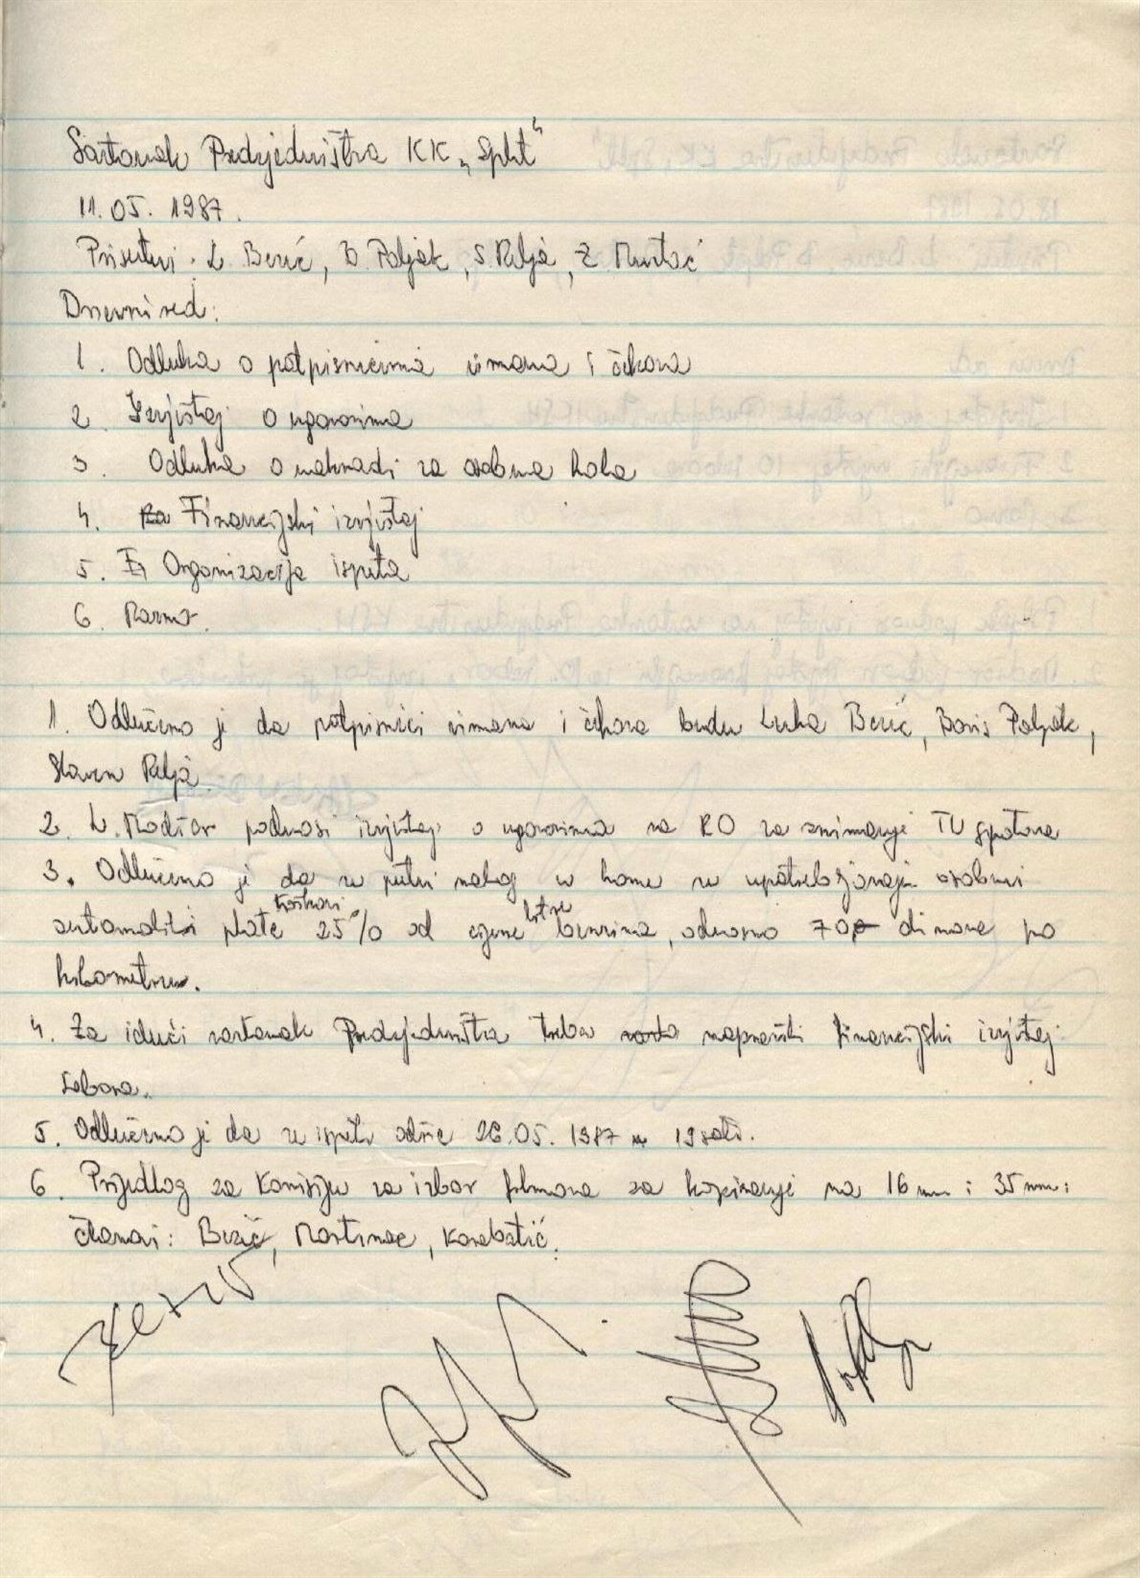 Sastanak Predsjedništva KK „Split“
11.05. 1987.
Prisutni: L. Bezić, B. Poljak, S. Relja, Ž.
Dnevni red:
1. Odluka o potpisnicima virmana i čekova
2. Izvještaj o ugovorima
3. Odluka o naknadi za osobna kola
4. Financijski izvještaj
5. Organizacija ispita
6. Razno.
1. Odlučeno je da potpisnici virmana i čekova budu Luka Bezić, Boris Poljak,
Slaven Relja.
2. L. podnosi izvještaj o ugovorima sa RO za snimanje TV spotova
3. Odlučeno je da se putni nalog u kome se upotrebljavaju osobni
automobili plate troškovi 25% od cijene litre benzina, odnosno 70 dinara po
kilometru.
4. Za idući sastanak Predsjedništva treba napraviti financijski izvještaj
Sabora.
5. Odlučeno je da se ispiti održe 26.05. 1987 u 19 sati.
6. Prijedlog za Komisiju za izbor filmova za kopiranje na 16 mm i 35 mm:
članovi: Bezić, Martinac, Karabatić.